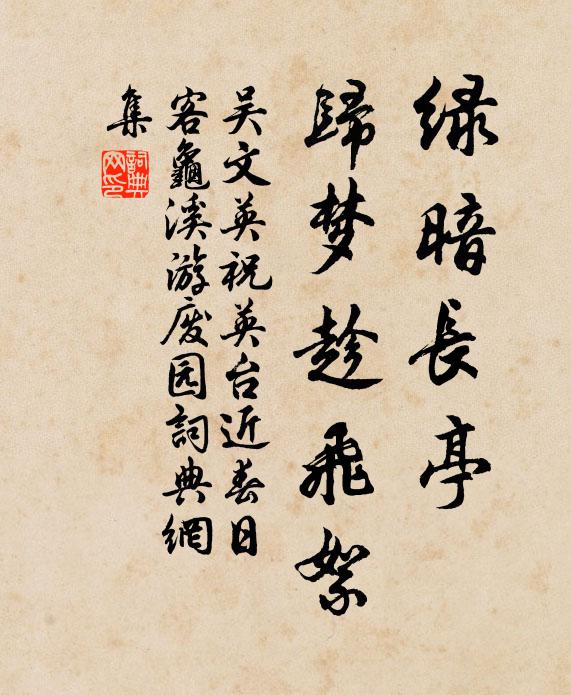 绿暗長亭
歸梦趁飛絮
吴文英祝英台近春日
客龜溪游废园詞典網
集
詞典网印